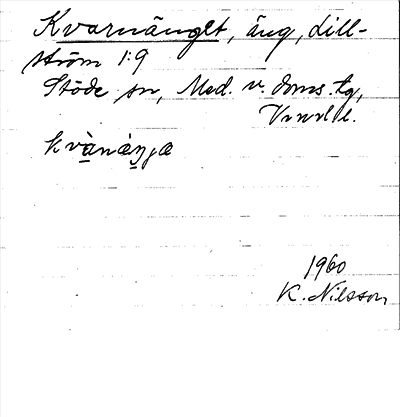 Kvarnänget, äng, Lill-
ström 1:9
Stöde sn, Med. v. doms. tg,
Vrnrl l.
kvànáŋa
1960
K. Nilsson